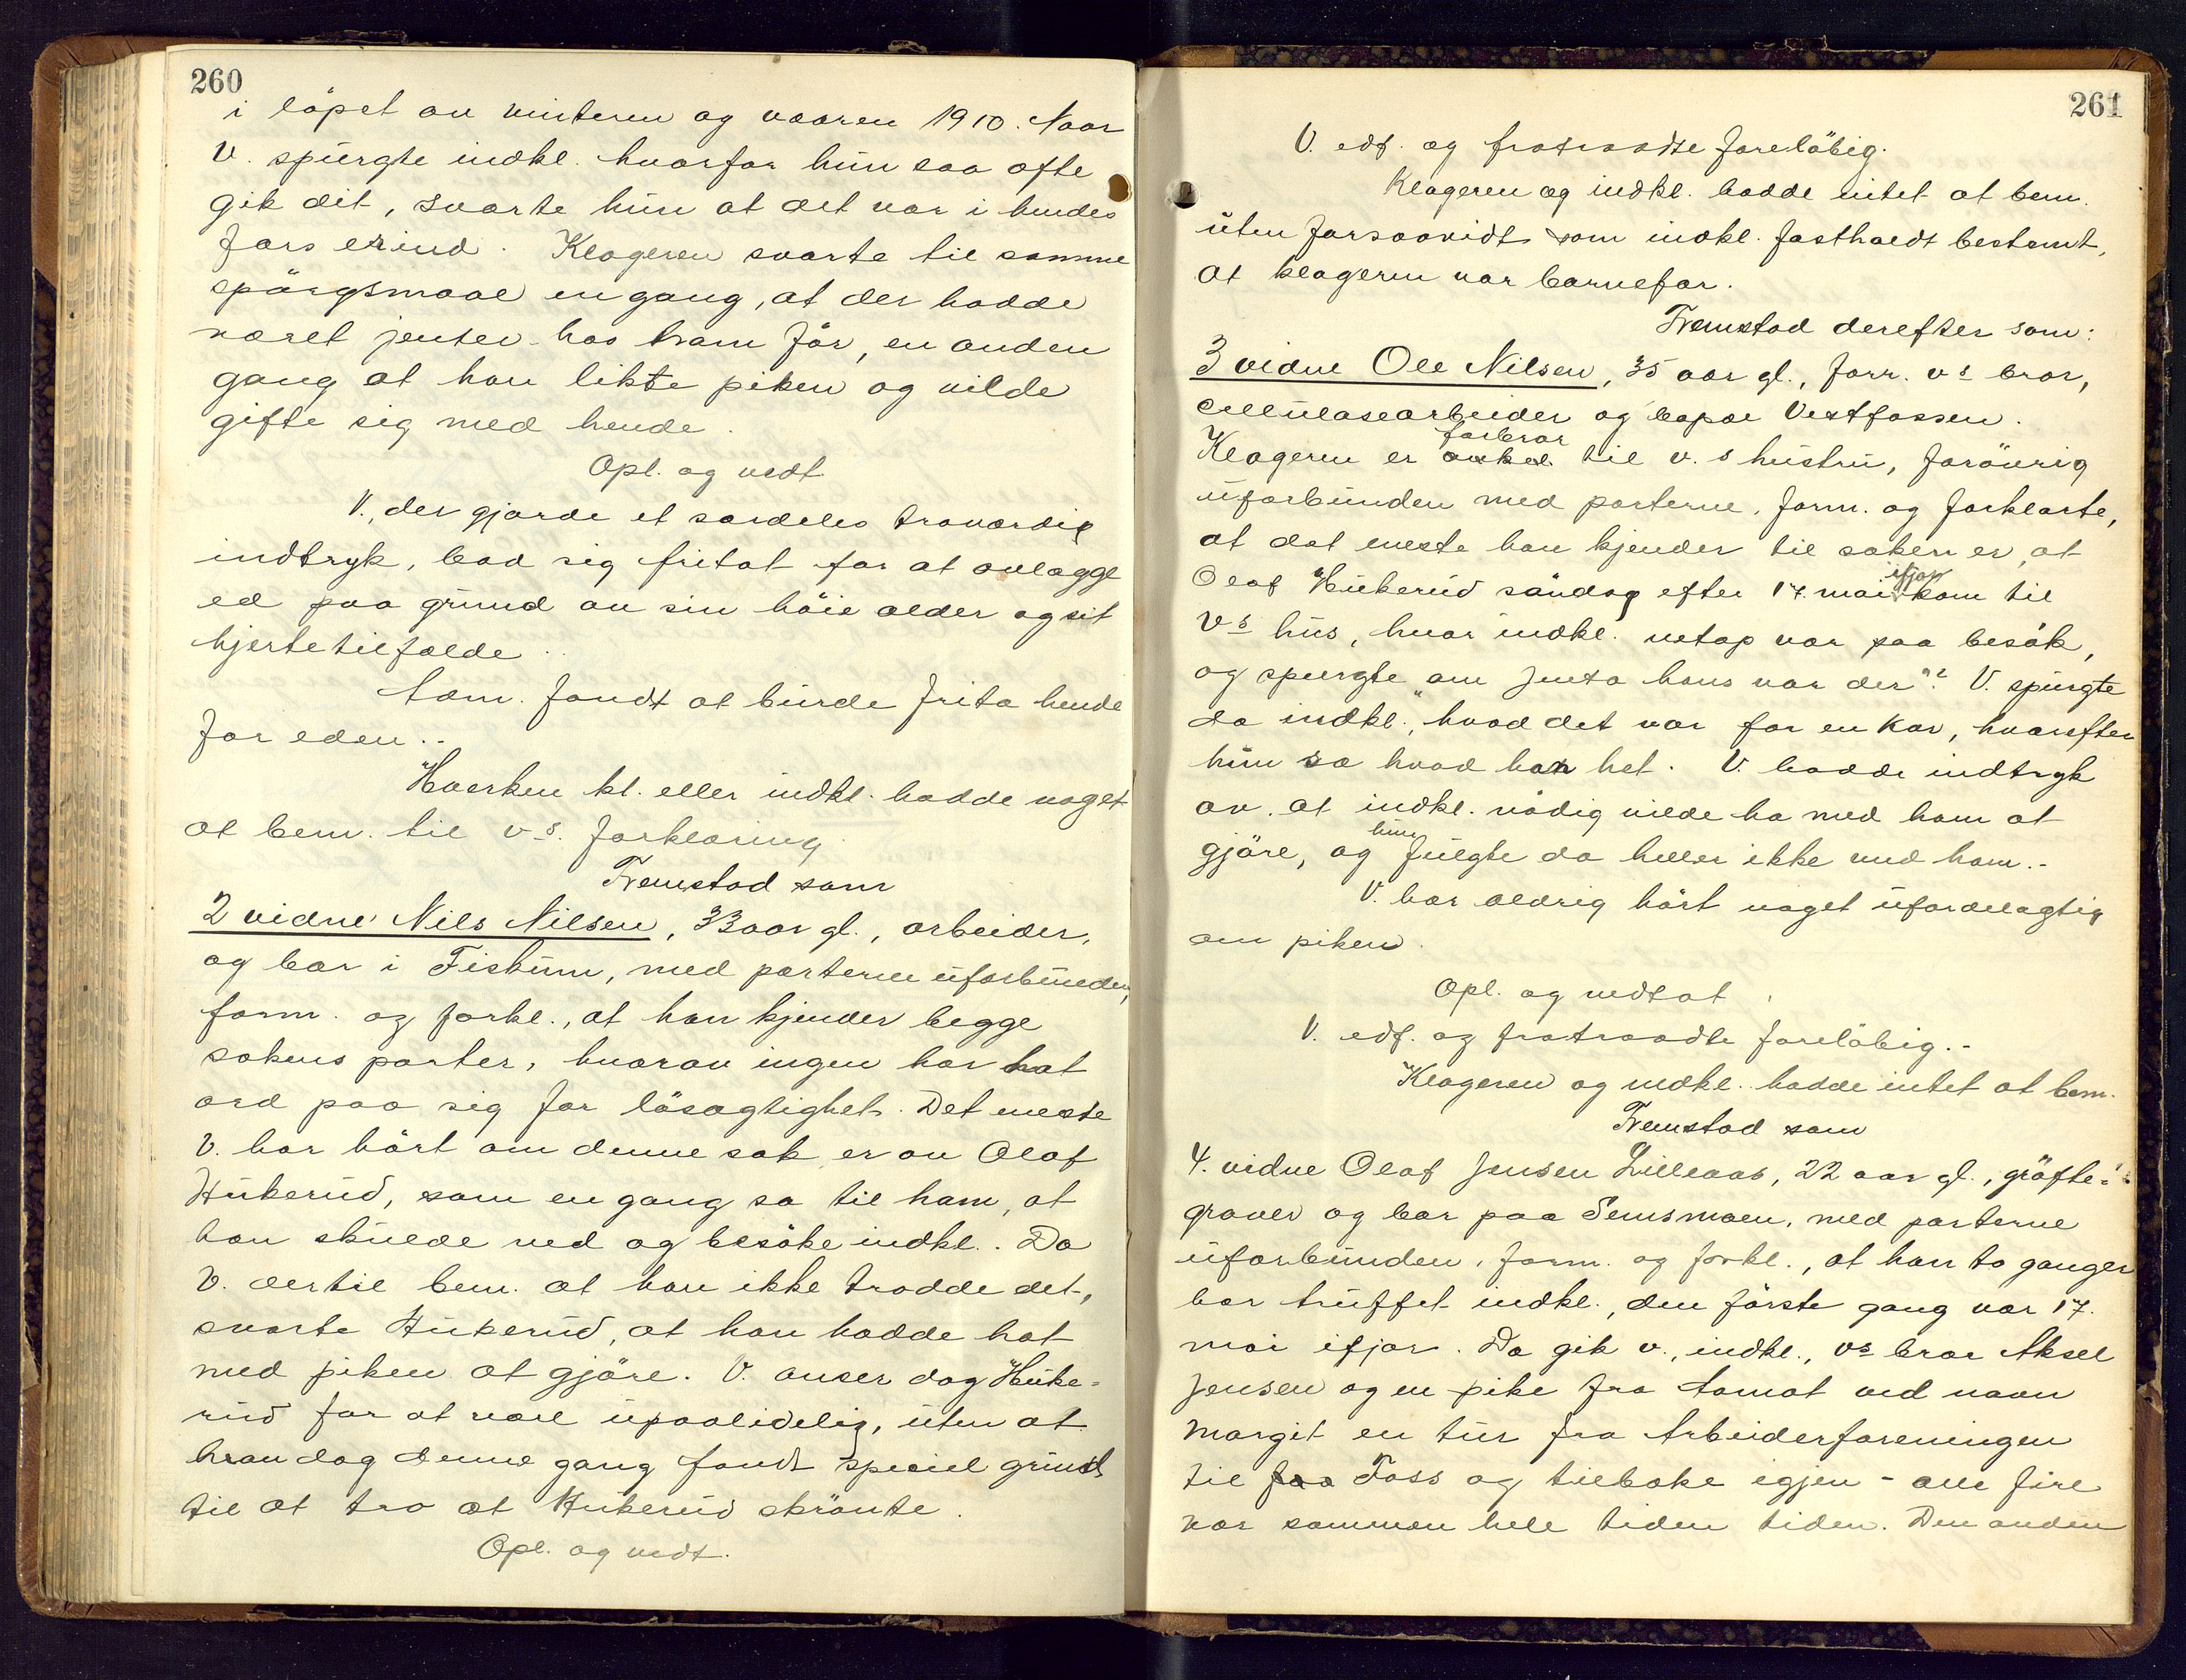 260
i löpet av vinteren og vaaren 1910. Naar
V. spurgte indkl. hvorfor hun saa ofte
gik dit, svarte hun at det var i hendes
fars erind. Klageren svarte til samme
spörgsmaal en gang, at der hadde
været jenter hos ham för, en anden
gang at han likte piken og vilde
gifte sig med hende.
Opl. og vedt.
V., der gjorde et særdeles troværdig
indtryk, bad sig fritat for at avlægge
ed paa grund av sin höie alder og sit
hjertetilfælde.
Dom. fandt at burde frita hende
for eden..
Hverken kl. eller indkl. hadde noget
at bem. til v-s. forklaring.
Fremstod som
2 vidne Nils Nilsen, 33 aar gl., arbeider,
og bor i Fiskum, med parterne uforbunden,
form. og forkl., at han kjender begge
sakens parter, hvorav ingen har hat
ord paa sig for lösagtighet. Det eneste
V. har hört om denne sak er av Olaf
Hukerud, som en gang sa til ham, at
han skulde ned og besöke indkl.. Da
V. dertil bem. at han ikke trodde det,
svarte Hukerud, at han hadde hat
med piken at gjöre. V. anser dog Huke=
rud for at være upaalidelig, uten at
han dog denne gang fandt speciel grund
til at tro at Hukerud skrönte.
Opl. og vedt.
261
V. edf. og fratraadte foreläbig.
Klageren og indkl. hadde intet at bem.
uten forsaavidt som indkl. fastholdt bestemt,
at klageren var barnefar.
Fremstod derefter som:
3 vidne Ole Nilsen, 35 aar gl., forr. vs bror,
cellulosearbeider og bopæl Vestfossen.
farbror
Klageren er onkel til v.s hustru, forövrig
uforbunden med parterne, form. og forklarte,
at det eneste han kjender til saken er, at
ifjor
Olaf Hukerud söndag efter 17. mai kom til
Vs hus, hvor indkl. netop var paa besök,
og spurgte "om jenta hans var der"? V. spurgte
da indkl., hvad det var for en kar, hvorefter
hun sa hvad han het. V. hadde indtryk
av. at indkl. nödig vilde ha med ham at
hun
gjöre, og fulgte da heller ikke med ham.-
V. har aldrig hört noget ufordelagtig
om piken.
Opl. og vedtat.
V. edf. og fratraadte forelöbig.-
Klageren og indkl. hadde intet at bem.
Fremstod som
4. vidne Olaf Jensen Lilleaas, 22 aar gl., gröfte=
graver og bor paa Semsmoen, med parterne
uforbunden, form. og forkl., at han to ganger
har truffet indkl., den förste gang var 17.
mai ifjor. Da gik v., indkl., vs bror Aksel
Jensen og en pike fra Aamot ved navn
Margit en tur fra Arbeiderforeningen
til Foss og tilbake igjen - alle fire
var sammen hele tiden tiden. Den anden